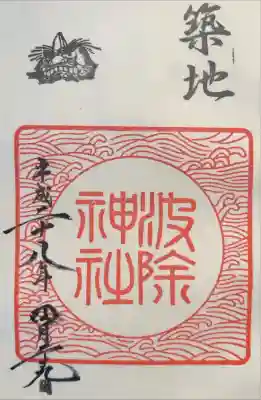 築地
波除
神社
平成二十八年四月十九日